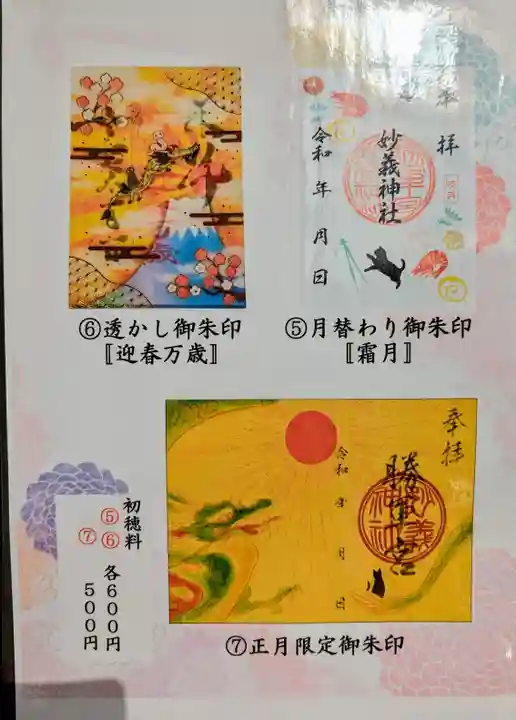 奉拝
妙義神社
令和 年 月 日
⑤月替わり御朱印
〚霜月〛
⑥透かし御朱印
〚迎春万歳〛
奉拝
令和 年 月 日
⑦正月限定御朱印
初穂料
⑤⑥ 各600円
⑦ 500円